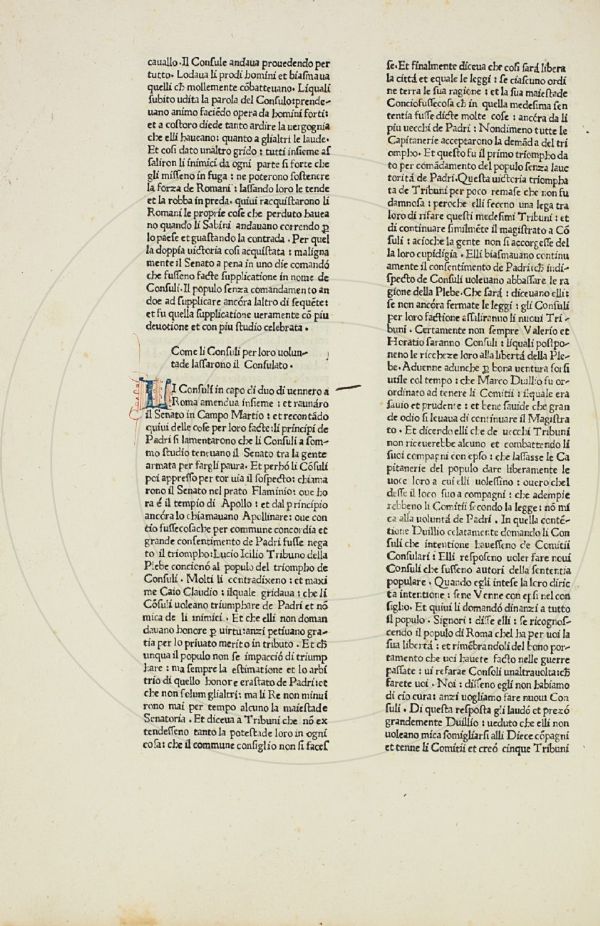 cauallo. Il Consule andaua prouedendo per
tutto. Lodaua li prodi homini et biasmaua
quelli ch̄ mollemente cōbatteuano. Liquali
subito udita la parola del Consulo: prende-
uano animo faciēdo opera da homini forti:
et a costoro diede tanto ardire la uergognia
che elli haueano: quanto a glialtri le laude.
Et cosi dato unaltro grido: tutti insieme as
saliron li inimici da ogni parte si forte che
gli misseno in fuga: ne poterono sostenere
la forza de Romani: lassando loro le tende
et la robba in preda. quiui racquistarono li
Romani le proprie cose che perduto hauea
no quando li Sabini andauano correndo p̲
lo paese et guastando la contrada. Per quel
la doppia uictoria cosi acquistata: maligna
mente il Senato a pena in uno die comandó
che fusseno facte supplicatione in nome de
Consuli. Il populo senza comandamento an
doe ad supplicare ancóra laltro di sequēte:
et fu quella supplicatione ueramente có piu
deuotione et con piu studio celebrata.
Come li Consuli per loro uolun-
tade lassarono il Consulato.
LI Consuli in capo di duo di uennero a
Roma amendua insieme: et raunáro
il Senato in Campo Martio: et recontādo
quiui delle cose per loro facte: li principi de
Padri si lamentarono che li Consuli a som-
mo studio teneuano il Senato tra la gente
armata per fargli paura. Et perhó li Cōsuli
poi appresso per tor uia il sospecto: chiama
rono il Senato nel prato Flaminio: oue ho
ra é il tempio di Apollo: et dal principio
ancóra lo chiamauano Apollinare: oue con
tio fussecosache per commune concordia et
grande consentimento de Padri fusse nega
to il triompho: Lucio Icilio Tribuno della
Plebe concienó al populo del triompho de
Consuli. Molti li contradixeno: et maxi
me Caio Claudio: ilquale gridaua: che li
Cōsuli uoleano triumphare de Padri et nō
mica de li inimici. Et che elli non doman
dauano honore p̲ uirtu: anzi petiuano gra-
tia per lo priuato merito in tributo. Et ch̄
unqua il populo non se impacció di triump
hare: ma sempre la estimatione et lo arbi
trio di quello honore era stato de Padri: et
che non solum glialtri: ma li Re non minui
rono mai per tempo alcuno la maiestade
Senatoria. Et diceua a Tribuni che nō ex
tendesseno tanto la potestade loro in ogni
cosa: che il commune consiglio non si faces
se. Et finalmente diceua che cosi sará libera
la cittá et equale le leggi: se ciascuno ordi
ne terra le sua ragione: et la sua maiestade
Conciofussecosa ch̄ in quella medesima sen
tentia fusse dicte molte cose: ancóra da li
piu uecchi de Padri: Nondimeno tutte le
Capitanerie acceptarono la demāda del tri
ompho. Et questo fu il primo triompho da
to per comādamento del populo senza lauc
toritá de Padri. Questa uictoria triompha
ta de Tribuni per poco remase che non fu
damnosa: peroche elli feceno una lega tra
loro di rifare questi medesimi Tribuni: et
di continuare similmēte il magistrato a Cō
suli: acioche la gente non si accorgesse del
la loro cupidigia. Elli biasmauano continu
amente il consentimento de Padri: ch̄ indi-
specto de Consuli uoleuano abbassare le ra
gione della Plebe. Che sará: diceuano elli:
se non ancóra fermate le leggi: gli Consuli
per loro factione assiliranno li nuoui Tri-
buni. Certamente non sempre Valerio et
Horatio saranno Consuli: liquali postpo-
neno le richeze loro alla libertá della Ple-
be. Aduenne adunche p̲ bona uentura foi si
utile col tempo: che Marco Duillio fu or-
dinato ad tenere li Comitii: ilquale era
sauio et prudente: et bene sauide che gran
de odio si leuaua di continuare il Magistra
to. Et dicendo elli che de uecchi Tribuni
non riceuerebbe alcuno et combattendo li
suoi compagni con epso: che lassasse le Ca
pitanerie del populo dare liberamente le
uoce loro a cui elli uolessino: ouero chel
desse il loco suo a compagni: che adempie
rebbeno li Comitii secondo la legge: nō mi
ca alla voluntá de Padri. In quella contē-
tione Duillio celatamente domando li Con
suli che intentione hauesseno de Comitii
Consulari: Elli resposeno uoler fare noui
Consuli che fusseno autori della sententia
populare. Quando egli intese la loro diric
ta intentione: sene Venne con epsi nel con
siglio. Et quiui li domandó dinanzi a tutto
il populo. Signori: disse elli: se ricognos-
cendo il populo di Roma chel ha per uoi la
sua libertá: et rimēbrandoli del bono por-
tamento che uoi hauete facto nelle guerre
passate: ui refarae Consoli unaltrauolta: ch̄
farete uoi. Noi: disseno egli non habiamo
di cio cura: anzi uogliamo fare nuoui Con
suli. Di questa resposta gli laudó et prezó
grandemente Duillio: ueduto che elli non
uoleano mica somigliarsi alli Diece cōpagni
et tenne li Comitii et creó cinque Tribuni